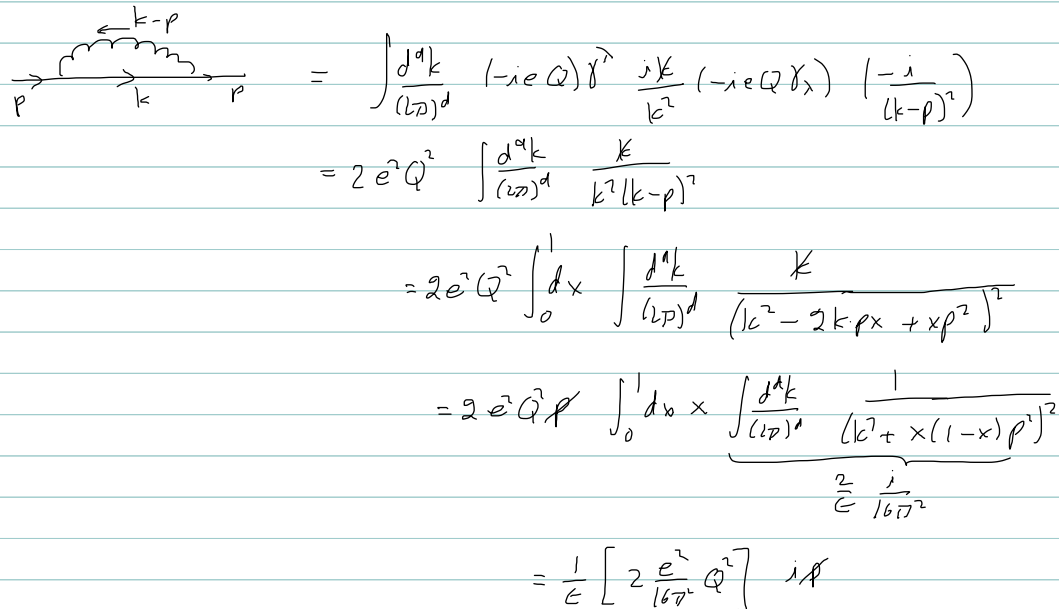 k-p
p k p = ∫ dᵈk/(2π)ᵈ (-ieQ)γ^λ i k̸/k² (-ieQγ_λ) (-i/(k-p)²)
= 2e²Q² ∫ dᵈk/(2π)ᵈ k̸/(k²(k-p)²)
= 2e²Q² ∫₀¹ dx ∫ dᵈk/(2π)ᵈ k̸/(k² - 2k·px + xp²)²
= 2e²Q² p̸ ∫₀¹ dx x ∫ dᵈk/(2π)ᵈ 1/(k² + x(1-x)p²)²
2/ϵ i/16π²
= 1/ϵ [2 e²/16π² Q²] i p̸